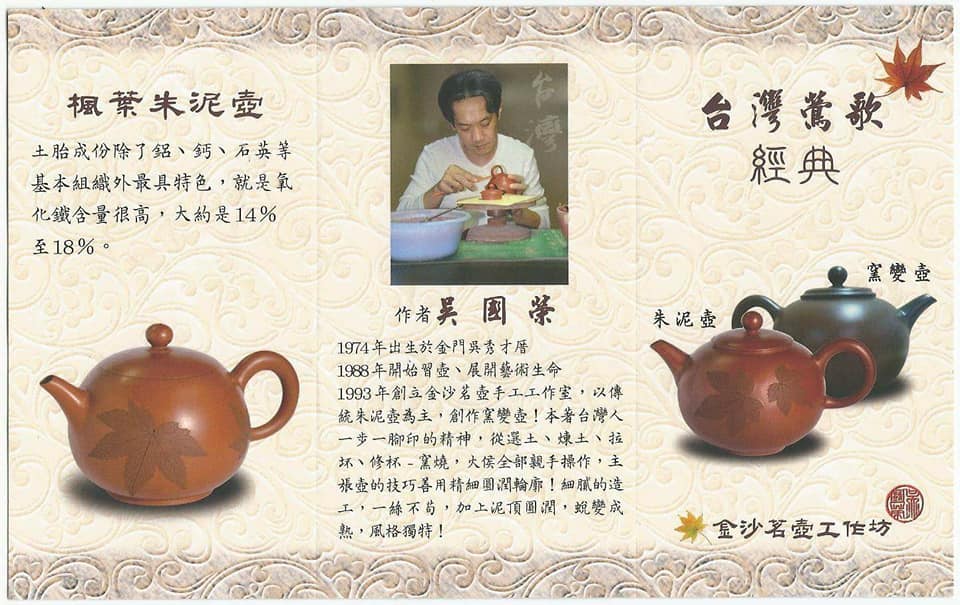 楓葉朱泥壺
土胎成份除了鋁、鈣、石英等
基本組織外最具特色，就是氧
化鐵含量很高，大約是14%
至18%。
台灣
作者吳國榮
1974年出生於金門吳秀才厝
1988年開始習壺、展開藝術生命
1993年創立金沙茗壺手工工作室，以傳
統朱泥壺為主，創作窯變壺！本著台灣人
一步一腳印的精神，從選土、煉土、拉
坏、修杯-窯燒，火侯全部親手操作，主
張壺的技巧善用精細圓潤輪廓！細膩的造
工，一絲不苟，加上泥頂圓潤，蛻變成
熟，風格獨特！
台灣鶯歌
經典
窯變壺
朱泥壺
金沙茗壺工作坊